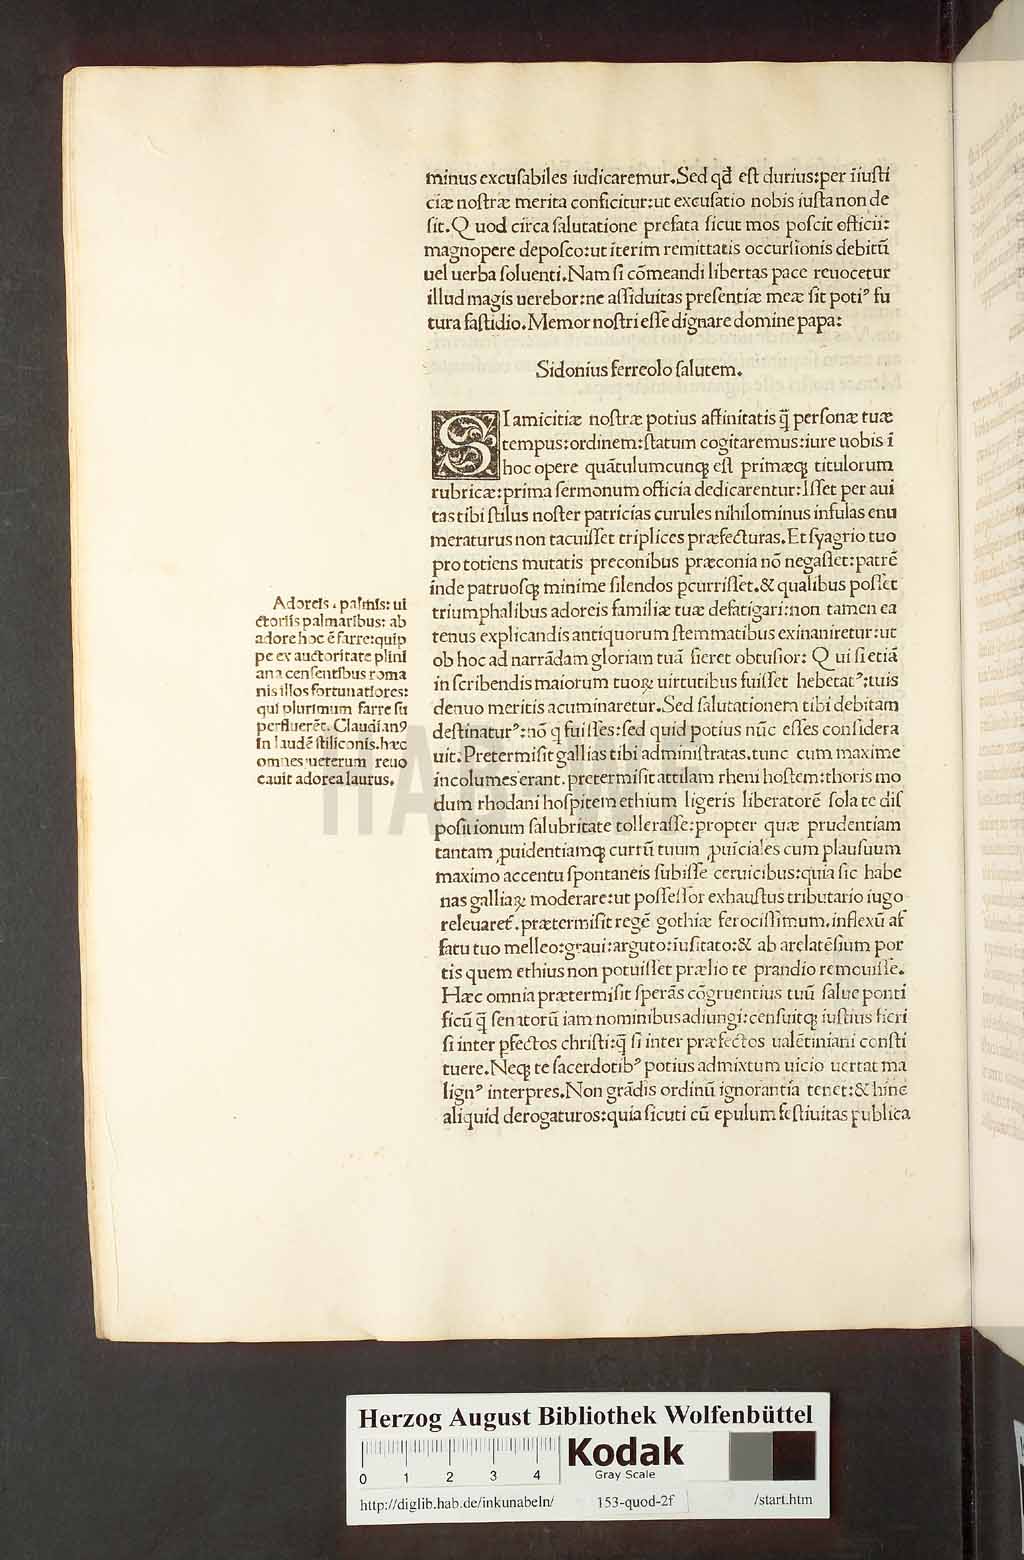 minus excuſabiles iudicaremur.Sed qđ eſt durius:per īiuſti
ciæ noſtræ merita conficitur:ut excuſatio nobis iuſta non de
ſit.Quod circa ſalutatione prefata ſicut mos poſcit officii:
magnopere depoſco:ut īterim remittatis occurſionis debitū
uel uerba ſoluenti.Nam ſi cōmeandi libertas pace reuocetur
illud magis uerebor:ne aſſiduitas preſentiæ meæ ſit potiꝰ fu
tura faſtidio.Memor noſtri eſſe dignare domine papa:
Sidonius ferreolo ſalutem.
SI amicitiæ noſtræ potius affinitatis q̄ perſonæ tuæ
tempus:ordinem:ſtatum cogitaremus:iure uobis ī
hoc opere quātulumcunqȝ eſt primæqȝ titulorum
rubricæ:prima ſermonum officia dedicarentur:Iſſet per aui
tas tibi ſtilus noſter patricias curules nihilominus infulas enu
meraturus non tacuiſſet triplices præfecturas.Et ſyagrio tuo
pro totiens mutatis preconibus præconia nō negaſſet:patrē
inde patruoſqȝ minime ſilendos ꝑcurriſſet.& qualibus poſſet
triumphalibus adoreis familiæ tuæ defatigari:non tamen ea
tenus explicandis antiquorum ſtemmatibus exinaniretur:ut
ob hoc ad narrādam gloriam tuā fieret obtuſior: Qui ſi etiā
in ſcribendis maiorum tuoꝝ uirtutibus fuiſſet hebetatꝰ:tuis
denuo meritis acuminaretur.Sed ſalutationem tibi debitam
deſtinaturꝰ:nō q fuiſſes:ſed quid potius nūc eſſes conſidera
uit.Pretermiſit gallias tibi adminiſtratas.tunc cum maxime
incolumes erant.pretermiſit attilam rheni hoſtem:thoris mo
dum rhodani hoſpitem ethium ligeris liberatorē ſola te diſ
poſitionum ſalubritate tolleraſſe:propter quæ prudentiam
tantam ꝓuidentiamqȝ currū tuum ꝓuīciales cum plauſuum
maximo accentu ſpontaneis ſubiſſe ceruicibus:quia ſic habe
nas galliaꝝ moderare:ut poſſeſſor exhauſtus tributario iugo
releuaret̄.prætermiſit regē gothiæ ferociſſimum.inflexū af
fatu tuo melleo:graui:arguto:īuſitato:& ab arelatēſium por
tis quem ethius non potuiſſet prælio te prandio remouiſſe.
Hæc omnia prætermiſit ſperās cōgruentius tuū ſalue ponti
ficū q̄ ſenatorū iam nominibus adiungi:cenſuitqȝ iuſtius fieri
ſi inter ꝑfectos chriſti:q̄ ſi inter præfectos ualētiniani conſti
tuere.Neqȝ te ſacerdotibꝰ potius admixtum uicio uertat ma
lignꝰ interpres.Non grādis ordinū ignorantia tenet:& hinc
aliquid derogaturos:quia ſicuti cū epulum feſtiuitas publica
Adoreis.palmis: ui
ctoriis palmaribus: ab
adore hoc ē farre:quip
pe ex auctoritate plini
ana cenſentibus roma
nis illos fortunatiores:
qui plurimum farre ſu
perfluerēt. Claudianꝰ
In laudē ſtiliconis.hæc
omnes ueterum reuo
cauit adorea laurus.
HAB WF
Herzog August Bibliothek Wolfenbüttel
Kodak
Gray Scale
0 1 2 3 4
http://diglib.hab.de/inkunabeln/ 153-quod-2f /start.htm